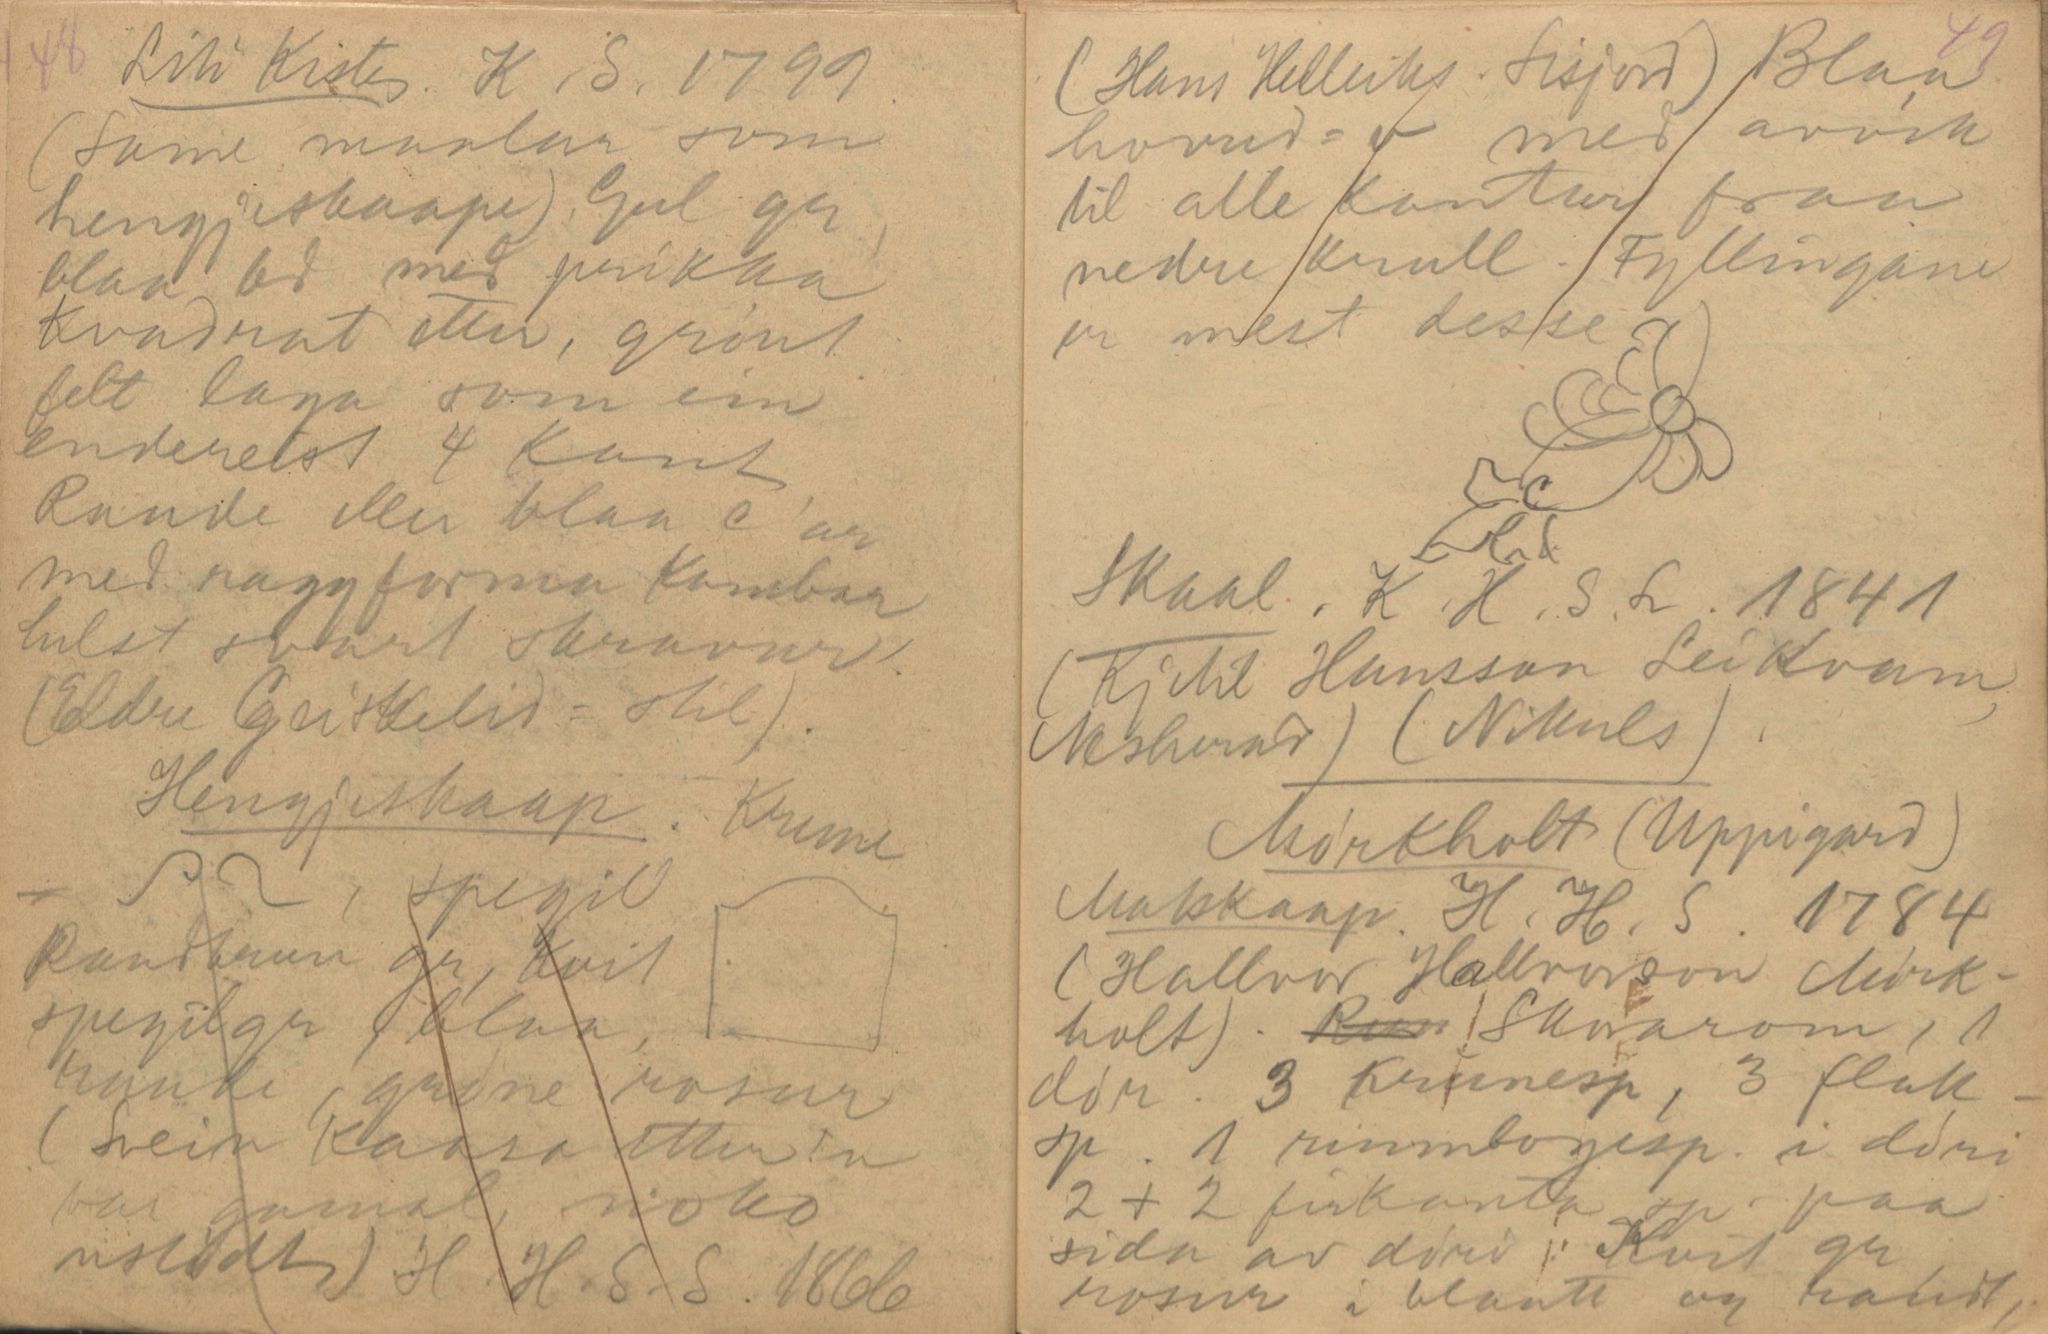 48
Liti Kiste. K. S. 1799
(Same maalar som
hengjeskaape). Gul gr,
blaa bd med prikka
Kvadrat etter, grönt
felt laga som ein
endereist 4 kant
Raude eller blaa C'ar
med raggforma kambar
helst svart skravur.
(Eldre Geiskelid = stil).
Hengjeskaap. Krune
, spegil
Raudbrun gr, kvit
spegilgr, blaa,
raude, gröne rosur
(Svein Kaasa etter 'n
var gamal, noko
ustödt) H. H. S. S. 1866
49
(Hans Helleiks. Lisjord) Blaa
hovud= med avvik
til alle kantar fraa
nedre krull. Fyllingane
er mest desse
Skaal. K. H. S. L. 1841
(Kjetil Hansson Leikvam,
Nesherad) (Nikuls).
Mörkholt (Uppigard)
Matskaap. H. H. S. 1784
(Hallvor Hallvorson Mörk-
holt). Skvarom, 1
dör. 3 krunesp, 3 flak-
sp. 1 runnbogesp. i döri
2 + 2 firkanta sp. paa
sida av döri. Kvit gr,
rosur i blaatt og raudt,